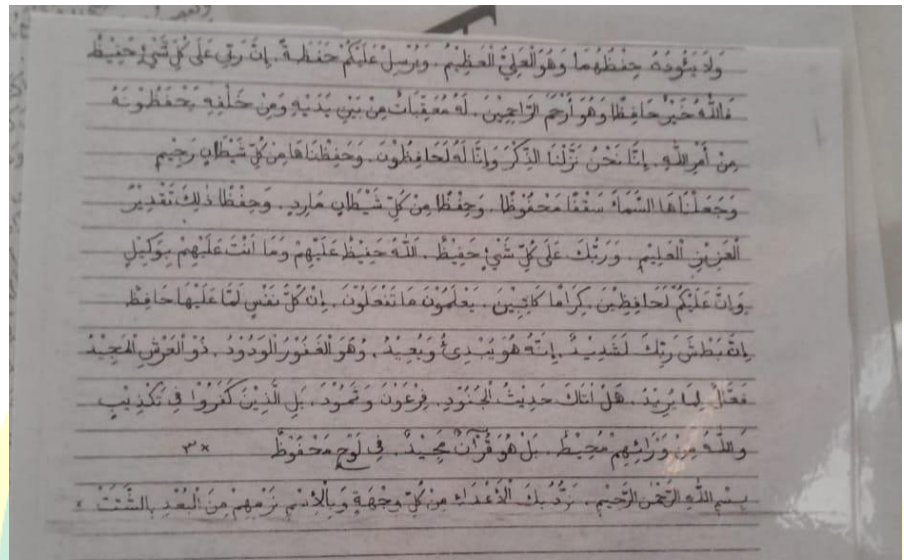 وَلَا يَئُودُهُ حِفْظُهُمَا وَهُوَ الْعَلِيُّ الْعَظِيْمُ . وَيُرْسِلُ عَلَيْكُمْ حَفَظَةً . إِنَّ رَبِّي عَلَى كُلِّ شَيْءٍ حَفِيْظٌ
فَاللهُ خَيْرٌ حَافِظًا وَهُوَ أَرْحَمُ الرَّاحِمِيْنَ . لَهُ مُعَقِّبَاتٌ مِنْ بَيْنِ يَدَيْهِ وَمِنْ خَلْفِهِ يَحْفَظُوْنَهُ
مِنْ أَمْرِ اللهِ . إِنَّا نَحْنُ نَزَّلْنَا الذِّكْرَ وَإِنَّا لَهُ لَحَافِظُوْنَ . وَحَفِظْنَاهَا مِنْ كُلِّ شَيْطَانٍ رَجِيْمٍ
وَجَعَلْنَاهَا السَّمَاءَ سَقْفًا مَحْفُوْظًا . وَحِفْظًا مِنْ كُلِّ شَيْطَانٍ مَارِدٍ . وَحِفْظًا ذٰلِكَ تَقْدِيْرُ
الْعَزِيْزِ الْعَلِيْمِ . وَرَبُّكَ عَلَى كُلِّ شَيْءٍ حَفِيْظٌ . اَللهُ حَفِيْظٌ عَلَيْهِمْ وَمَا اَنْتَ عَلَيْهِمْ بِوَكِيْلٍ
وَإِنَّ عَلَيْكُمْ لَحَافِظِيْنَ . كِرَامًا كَاتِبِيْنَ . يَعْلَمُوْنَ مَا تَفْعَلُوْنَ . اِنْ كُلُّ نَفْسٍ لَمَّا عَلَيْهَا حَافِظٌ
اِنَّ بَطْشَ رَبِّكَ لَشَدِيْدٌ . إِنَّهُ هُوَ يُبْدِئُ وَيُعِيْدُ . وَهُوَ الْغَفُوْرُ الْوَدُوْدُ . ذُو الْعَرْشِ الْمَجِيْدُ
فَعَّالٌ لِمَا يُرِيْدُ . هَلْ اَتَاكَ حَدِيْثُ الْجُنُوْدِ . فِرْعَوْنَ وَثَمُوْدَ . بَلِ الَّذِيْنَ كَفَرُوْا فِي تَكْذِيْبٍ
وَاللهُ مِنْ وَرَائِهِمْ مُحِيْطٌ . بَلْ هُوَ قُرْآنٌ مَجِيْدٌ . فِي لَوْحٍ مَحْفُوْظٍ ×٣
بِسْمِ اللهِ الرَّحْمٰنِ الرَّحِيْمِ . نَرُدُّ بِكَ الْأَعْدَاءَ مِنْ كُلِّ وِجْهَةٍ وَبِالْاِسْمِ نَرْمِهِمْ مِنَ الْبُعْدِ بِالشَّتَتْ